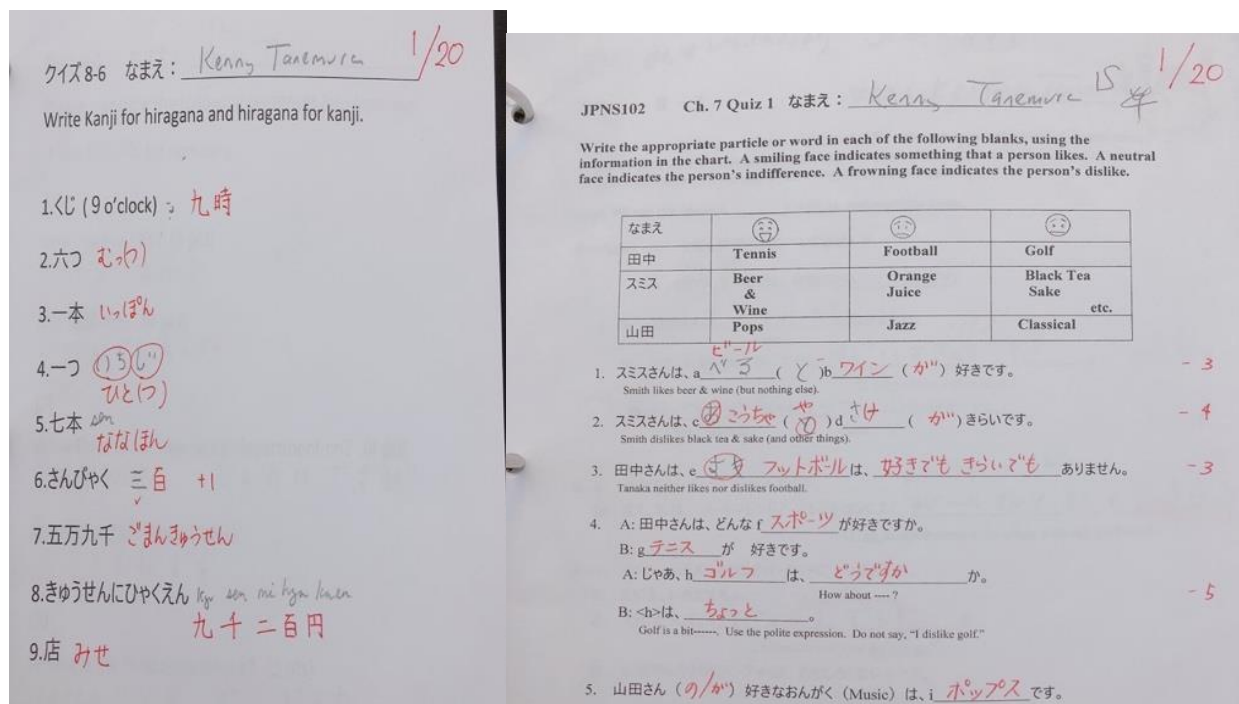 クイズ8-6 なまえ： Kenny Tanemura 1/20
Write Kanji for hiragana and hiragana for kanji.
1.くじ (9 o'clock) 九時
2.六つ むっ(つ)
3.一本 いっぽん
4.一つ いちじ
ひと(つ)
5.七本 sen
ななほん
6.さんびゃく 三百 +1
7.五万九千 ごまんきゅうせん
8.きゅうせんにひゃくえん
九千二百円
9.店 みせ
JPNS102 Ch. 7 Quiz 1 なまえ： Kenny Tanemura 1/20
Write the appropriate particle or word in each of the following blanks, using the
information in the chart. A smiling face indicates something that a person likes. A neutral
face indicates the person's indifference. A frowning face indicates the person's dislike.
なまえ
田中 Tennis Football Golf
スミス Beer Orange Black Tea
& Juice Sake
Wine etc.
山田 Pops Jazz Classical
ビール
1. スミスさんは、a ( と )b ワイン ( が ) 好きです。 -3
Smith likes beer & wine (but nothing else).
や
2. スミスさんは、c こうちゃ ( と )d さけ ( が )きらいです。 -4
Smith dislikes black tea & sake (and other things).
3. 田中さんは、e フットボールは、好きでも きらいでも ありません。 -3
Tanaka neither likes nor dislikes football.
4. A: 田中さんは、どんな f スポーツ が好きですか。
B: g テニス が 好きです。
A: じゃあ、h ゴルフ は、 どうですか か。
How about ---- ?
-5
B: <h>は、 ちょっと 。
Golf is a bit------. Use the polite expression. Do not say, "I dislike golf."
5. 山田さん (の/が) 好きなおんがく (Music) は、i ポップス です。